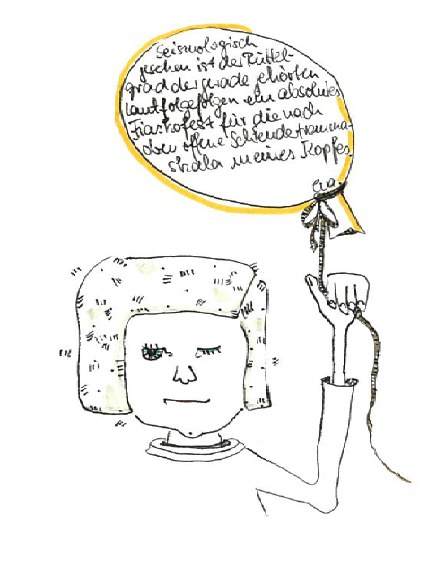 Seismologisch
gesehen ist der Rüttel-
grad der gerade gehörten
Lautfolgefolgen ein absolutes
Fiaskofest für die nach
oben offene Schleudertrauma-
skala meines Kopfes